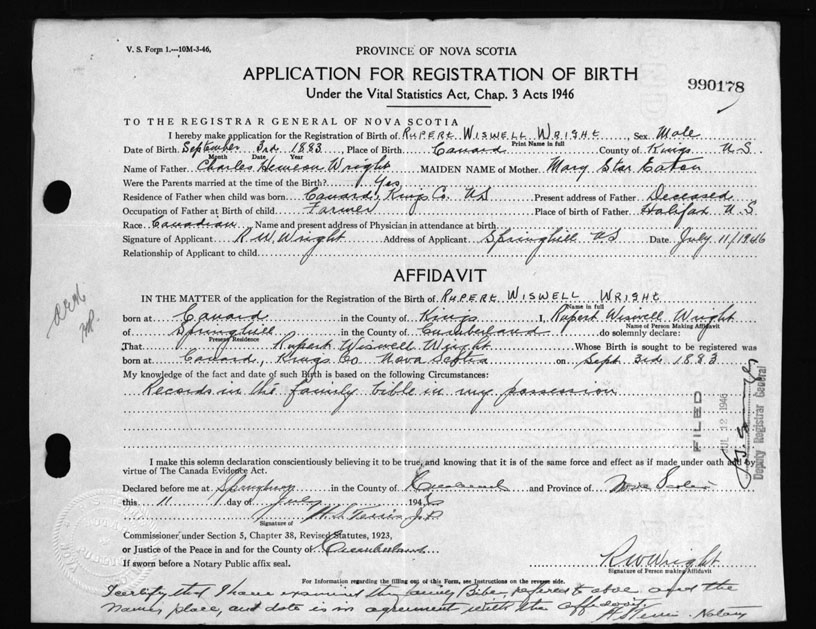 V. S. Form 1.—10M-3-46.
PROVINCE OF NOVA SCOTIA
APPLICATION FOR REGISTRATION OF BIRTH
990178
Under the Vital Statistics Act, Chap. 3 Acts 1946
TO THE REGISTRAR GENERAL OF NOVA SCOTIA
I hereby make application for the Registration of Birth of RUPERT WISWELL WRIGHT, Sex Male
Print Name in full
Date of Birth September 3rd 1883 Place of Birth Canard County of Kings N.S.
Month Date Year
Name of Father Charles Wright MAIDEN NAME of Mother Mary Star Eaton
Were the Parents married at the time of the Birth? Yes
Residence of Father when child was born Canard, Kings Co. NS Present address of Father Deceased
Occupation of Father at Birth of child Farmer Place of birth of Father Halifax N.S.
Race Canadian Name and present address of Physician in attendance at birth
Signature of Applicant R.W. Wright Address of Applicant Springhill NS Date July 11/1946
Relationship of Applicant to child
AFFIDAVIT
IN THE MATTER of the application for the Registration of the Birth of RUPERT WISWELL WRIGHT
Name in full
born at Canard in the County of Kings I, Rupert Wiswell Wright
Name of Person Making Affidavit
of Springhill in the County of Cumberland do solemnly declare:
Present Residence
That Rupert Wiswell Wright Whose Birth is sought to be registered was
born at Canard, Kings Co Nova Scotia on Sept 3rd 1883
My knowledge of the fact and date of such Birth is based on the following Circumstances:
Records in the family bible in my possession
FILED
JUL 12 1946
Deputy Registrar General
I make this solemn declaration conscientiously believing it to be true, and knowing that it is of the same force and effect as if made under oath and by
virtue of The Canada Evidence Act.
Declared before me at Springhill in the County of Cumberland and Province of Nova Scotia
this 11 day of July 1946
Signature of
Commissioner under Section 5, Chapter 38, Revised Statutes, 1923,
or Justice of the Peace in and for the County of Cumberland
If sworn before a Notary Public affix seal.
R W Wright
Signature of Person making Affidavit
For Information regarding the filling out of this Form, see Instructions on the reverse side.
I certify that I have examined the family Bible, referred to above and the
names, place, and date is in agreement with the affidavit
Notary